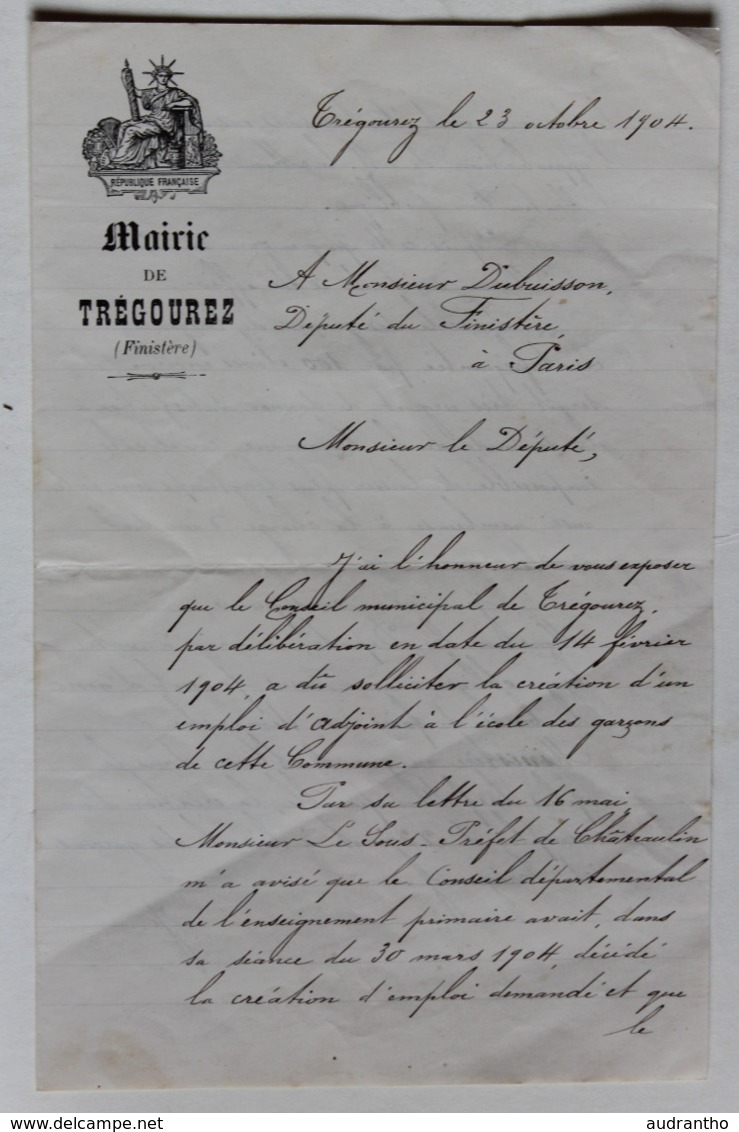 RÉPUBLIQUE FRANÇAISE
Mairie
DE
TRÉGOUREZ
(Finistère)
Trégourez le 23 octobre 1904.
A Monsieur Dubuisson,
Député du Finistère,
à Paris
Monsieur le Député,
J'ai l'honneur de vous exposer
que le Conseil municipal de Trégourez,
par délibération en date du 14 février
1904, a dû solliciter la création d'un
emploi d'adjoint à l'école des garçons
de cette Commune.
Par sa lettre du 16 mai,
Monsieur Le Sous-Préfet de Châteaulin
m'a avisé que le Conseil départemental
de l'enseignement primaire avait, dans
sa séance du 30 mars 1904, décédé
la création d'emploi demandé et que
le
delcampe.net
audrantho